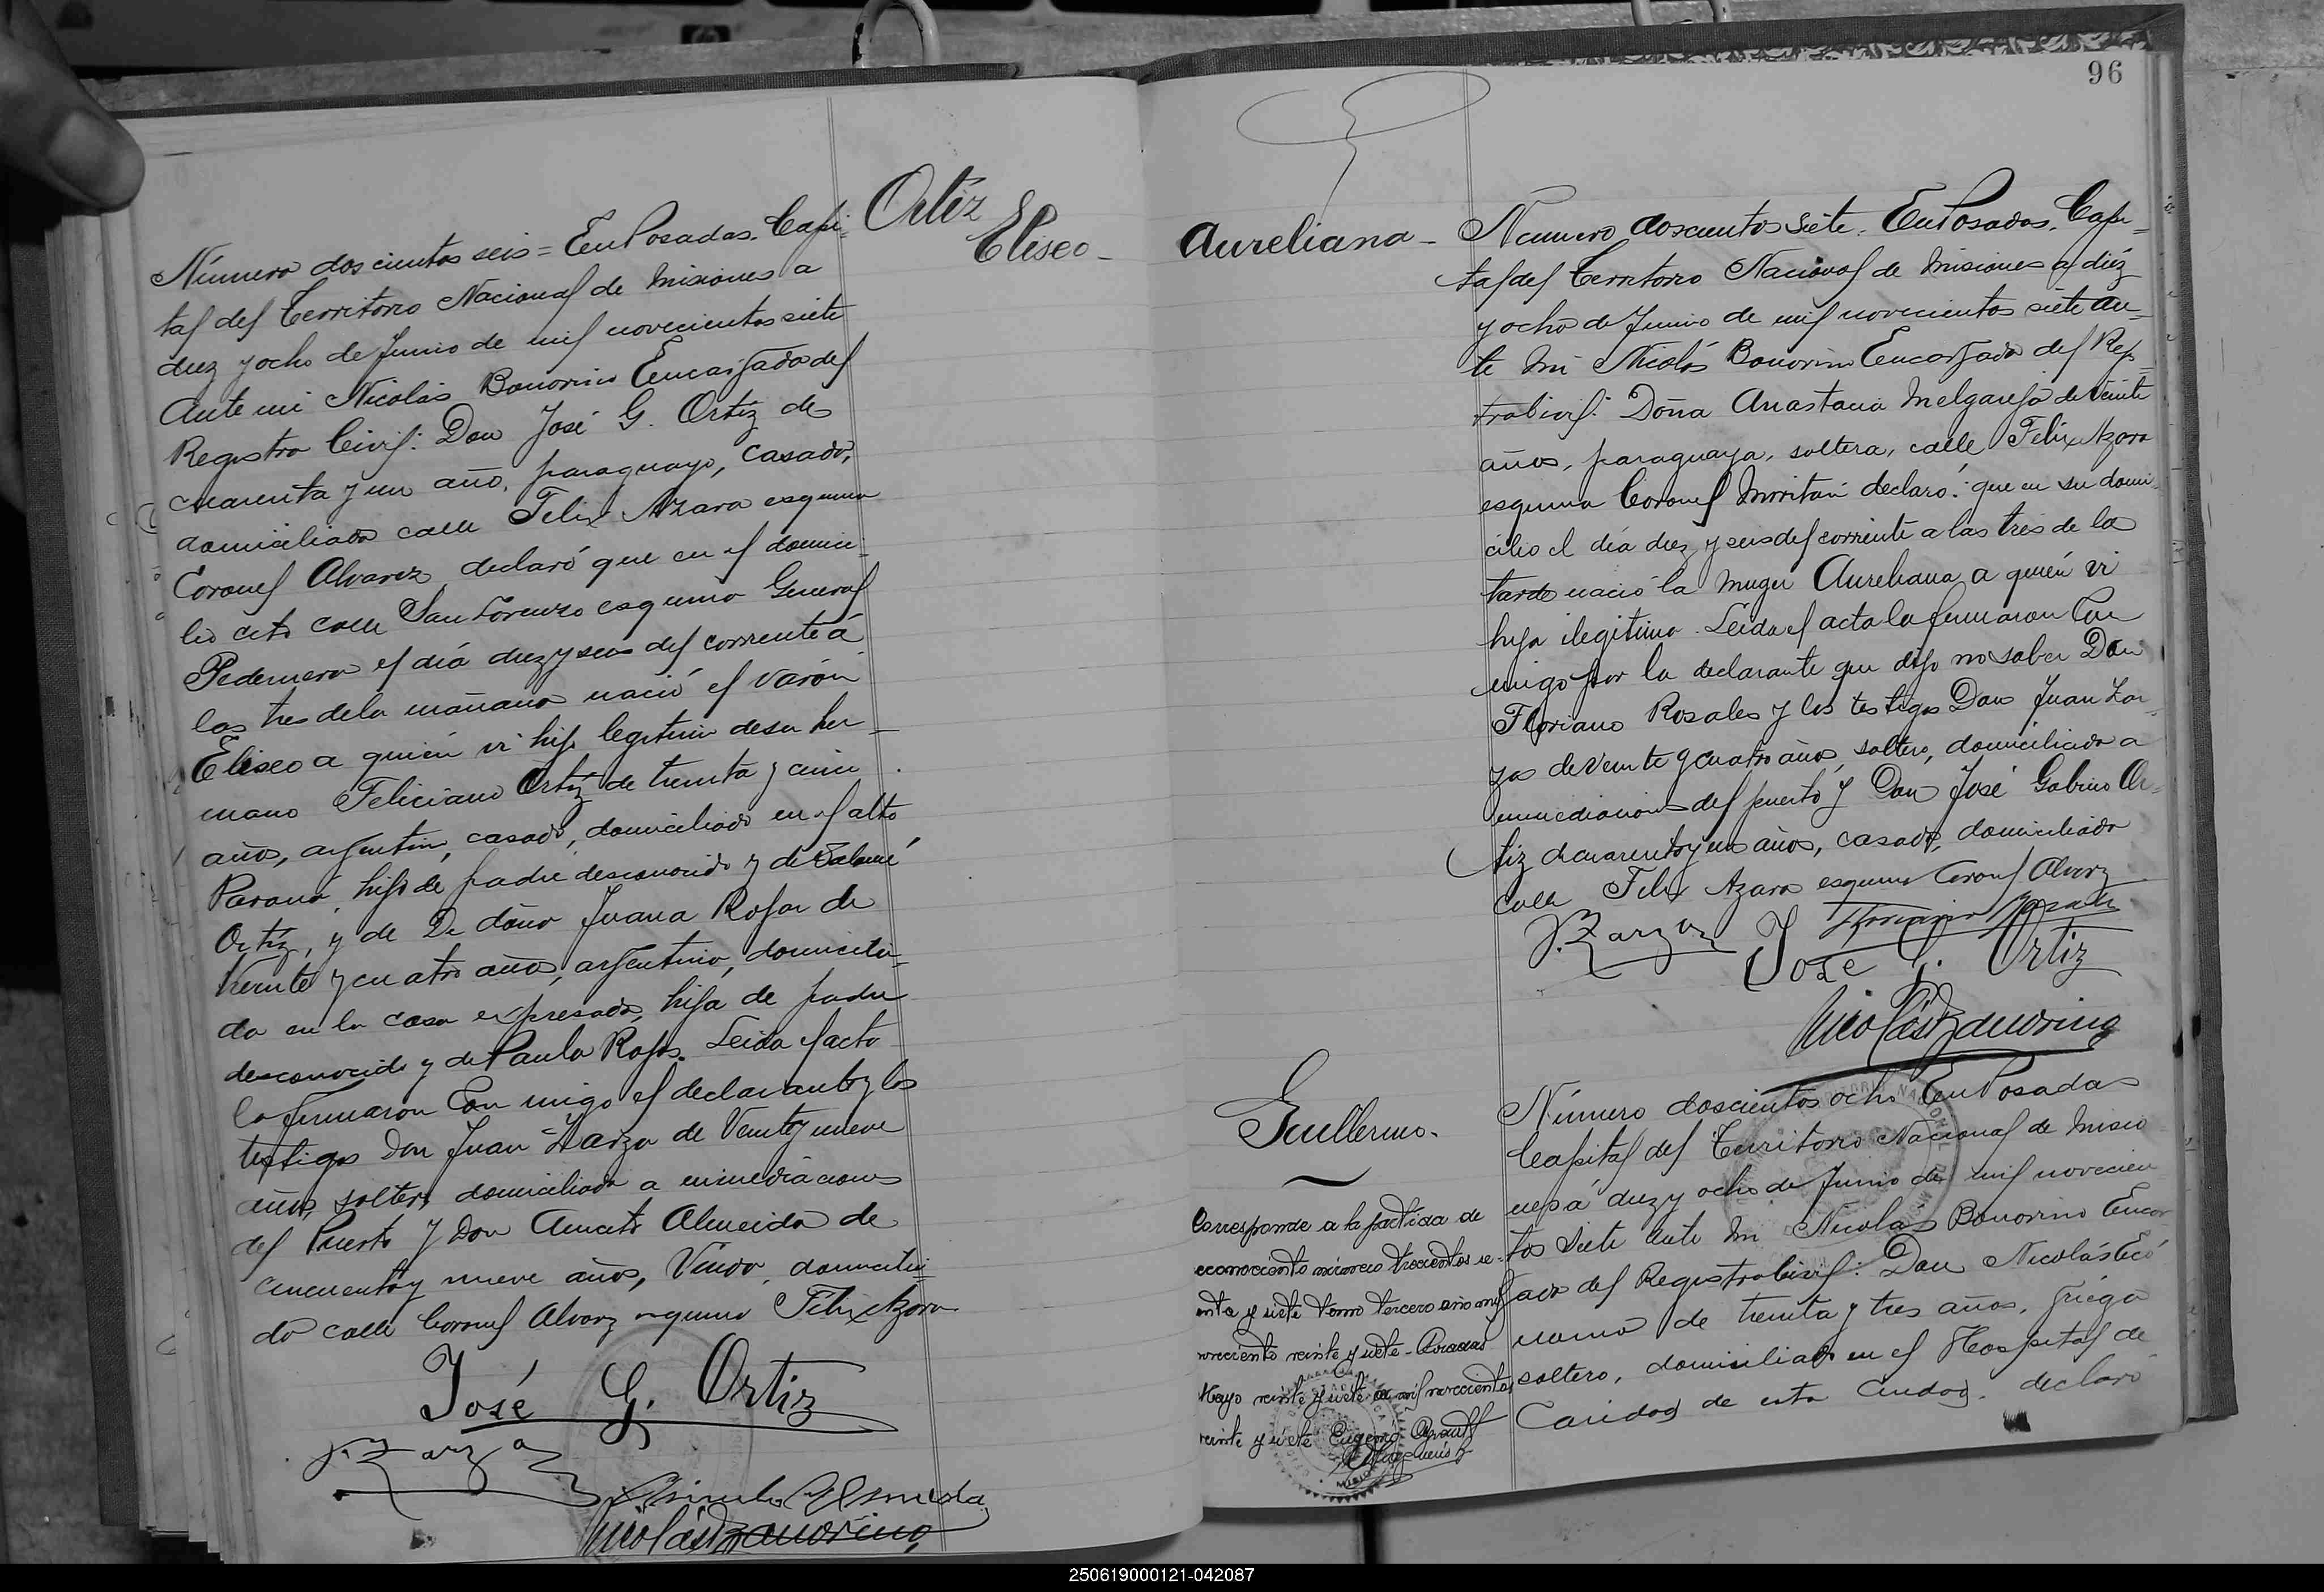 Ortiz
Eliseo -
Número doscientos seis = En Posadas. Capi-
tal del Territorio Nacional de Misiones a
diez y ocho de Junio de mil novecientos siete
Ante mi Nicolás Bonorino Encargado del
Registro Civil: Don José G. Ortiz de
cuarenta y un año, paraguayo, casado,
domiciliado calle Felix Azara esquina
Coronel Alvarez declaró que en el domici-
lio cito calle San Lorenzo esquina General
Pedernera el día diez y seis del corriente á
las tres de la mañana nació el varón
Eliseo a quién vi hijo legitimo de su her-
mano Feliciano Ortiz de treinta y cinco
años, argentino, casado, domiciliado en el alto
Paraná, hijo de padre desconocido y de Salomé
Ortiz, y de De doña Juana Rojas de
Veinte y cuatro años, argentina, domicilia-
da en la casa expresada, hija de padre
desconocido y de Paula Rojas. Leida el acta
la firmaron Con migo el declarante y los
testigos Don Juan Zarza de Veinte y nueve
años, soltero domiciliado a inmediaciones
del Puerto y Don Anacleto Almeida de
cincuenta y nueve años, Viudo, domicilia-
do calle Coronel Alvarez esquina Felix Azara
José G. Ortiz
J. Zarza
Almeida
Nicolás Bonorino
96
Aureliana -
Número doscientos siete. En Posadas. Capi-
tal del Territorio Nacional de Misiones a diéz
y ocho de Junio de mil novecientos siete an-
te mi Nicolás Bonorino Encargado del Regis-
tro Civil: Doña Anastacia Melgarejo de Veinte
años, paraguaya, soltera, calle Felix Azara
esquina Coronel declaró: que en su domi-
cilio el día diez y seis del corriente a las tres de la
tarde nació la muger Aureliana a quién vi
hija ilegitima. Leida el acta la firmaron Con
migo por la declarante que dijo no saber Don
Floriano Rosales y los testigos Don Juan Zar-
za de veinte y cuatro años, soltero, domiciliado a
inmediaciones del puerto y Don José Gabino Or-
tiz de cuarenta y un años, casado, domiciliado
calle Felix Azara esquina Coronel Alvarez
Floriano Rosales
J. Zarza José G. Ortiz
Nicolás Bonorino
Guillermo.
Corresponde a la partida de
econocimiento número trescientos se-
enta y siete tomo tercero año mil
novecientos veinte y siete - Posadas
Mayo veinte y siete de mil novecientos
veinte y siete Eugenio
Número doscientos ocho En Posadas
Capital del Territorio Nacional de Misio
nes á diez y ocho de Junio de mil novecien
tos siete ante mi Nicolás Bonorino Encar
gado del Registro Civil: Don Nicolás Eco
nomo de treinta y tres años, griego
soltero, domiciliado en el Hospital de
Caridad de esta Ciudad. declaró
250619000121-042087